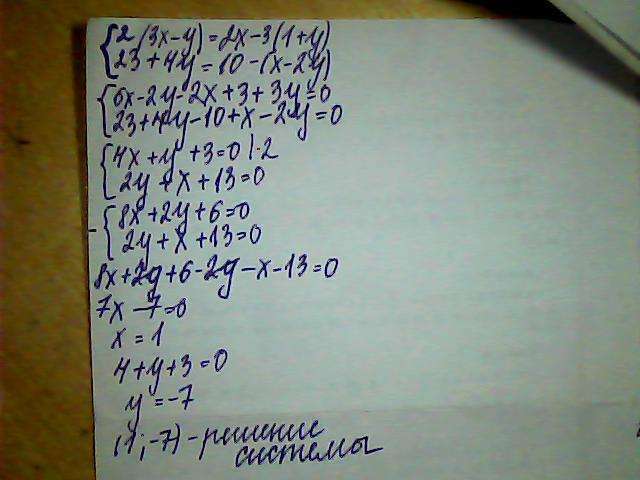 {2(3x-y)=2x-3(1+y)
{23+4y=10-(x-2y)
{6x-2y-2x+3+3y=0
{23+4y-10+x-2y=0
{4x+y+3=0 |·2
{2y+x+13=0
-{8x+2y+6=0
{2y+x+13=0
8x+2y+6-2y-x-13=0
7x-7=0
x=1
4+y+3=0
y=-7
(1;-7)-решение
системы